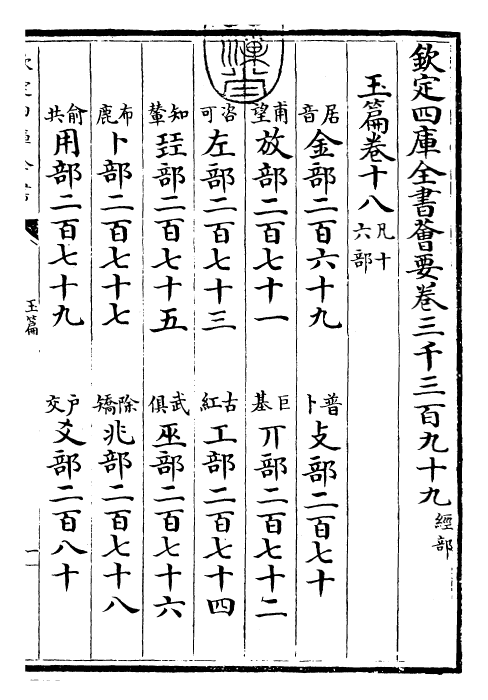 欽定四庫全書薈要卷三千三百九十九 經部
玉篇卷十八 凡十六部
居音 金部二百六十九 普卜 攴部二百七十
甫望 放部二百七十一 巨基 丌部二百七十二
咨可 左部二百七十三 古紅 工部二百七十四
知輦 㠭部二百七十五 武俱 巫部二百七十六
布鹿 卜部二百七十七 除矯 兆部二百七十八
俞共 用部二百七十九 戶交 爻部二百八十
玉篇
一